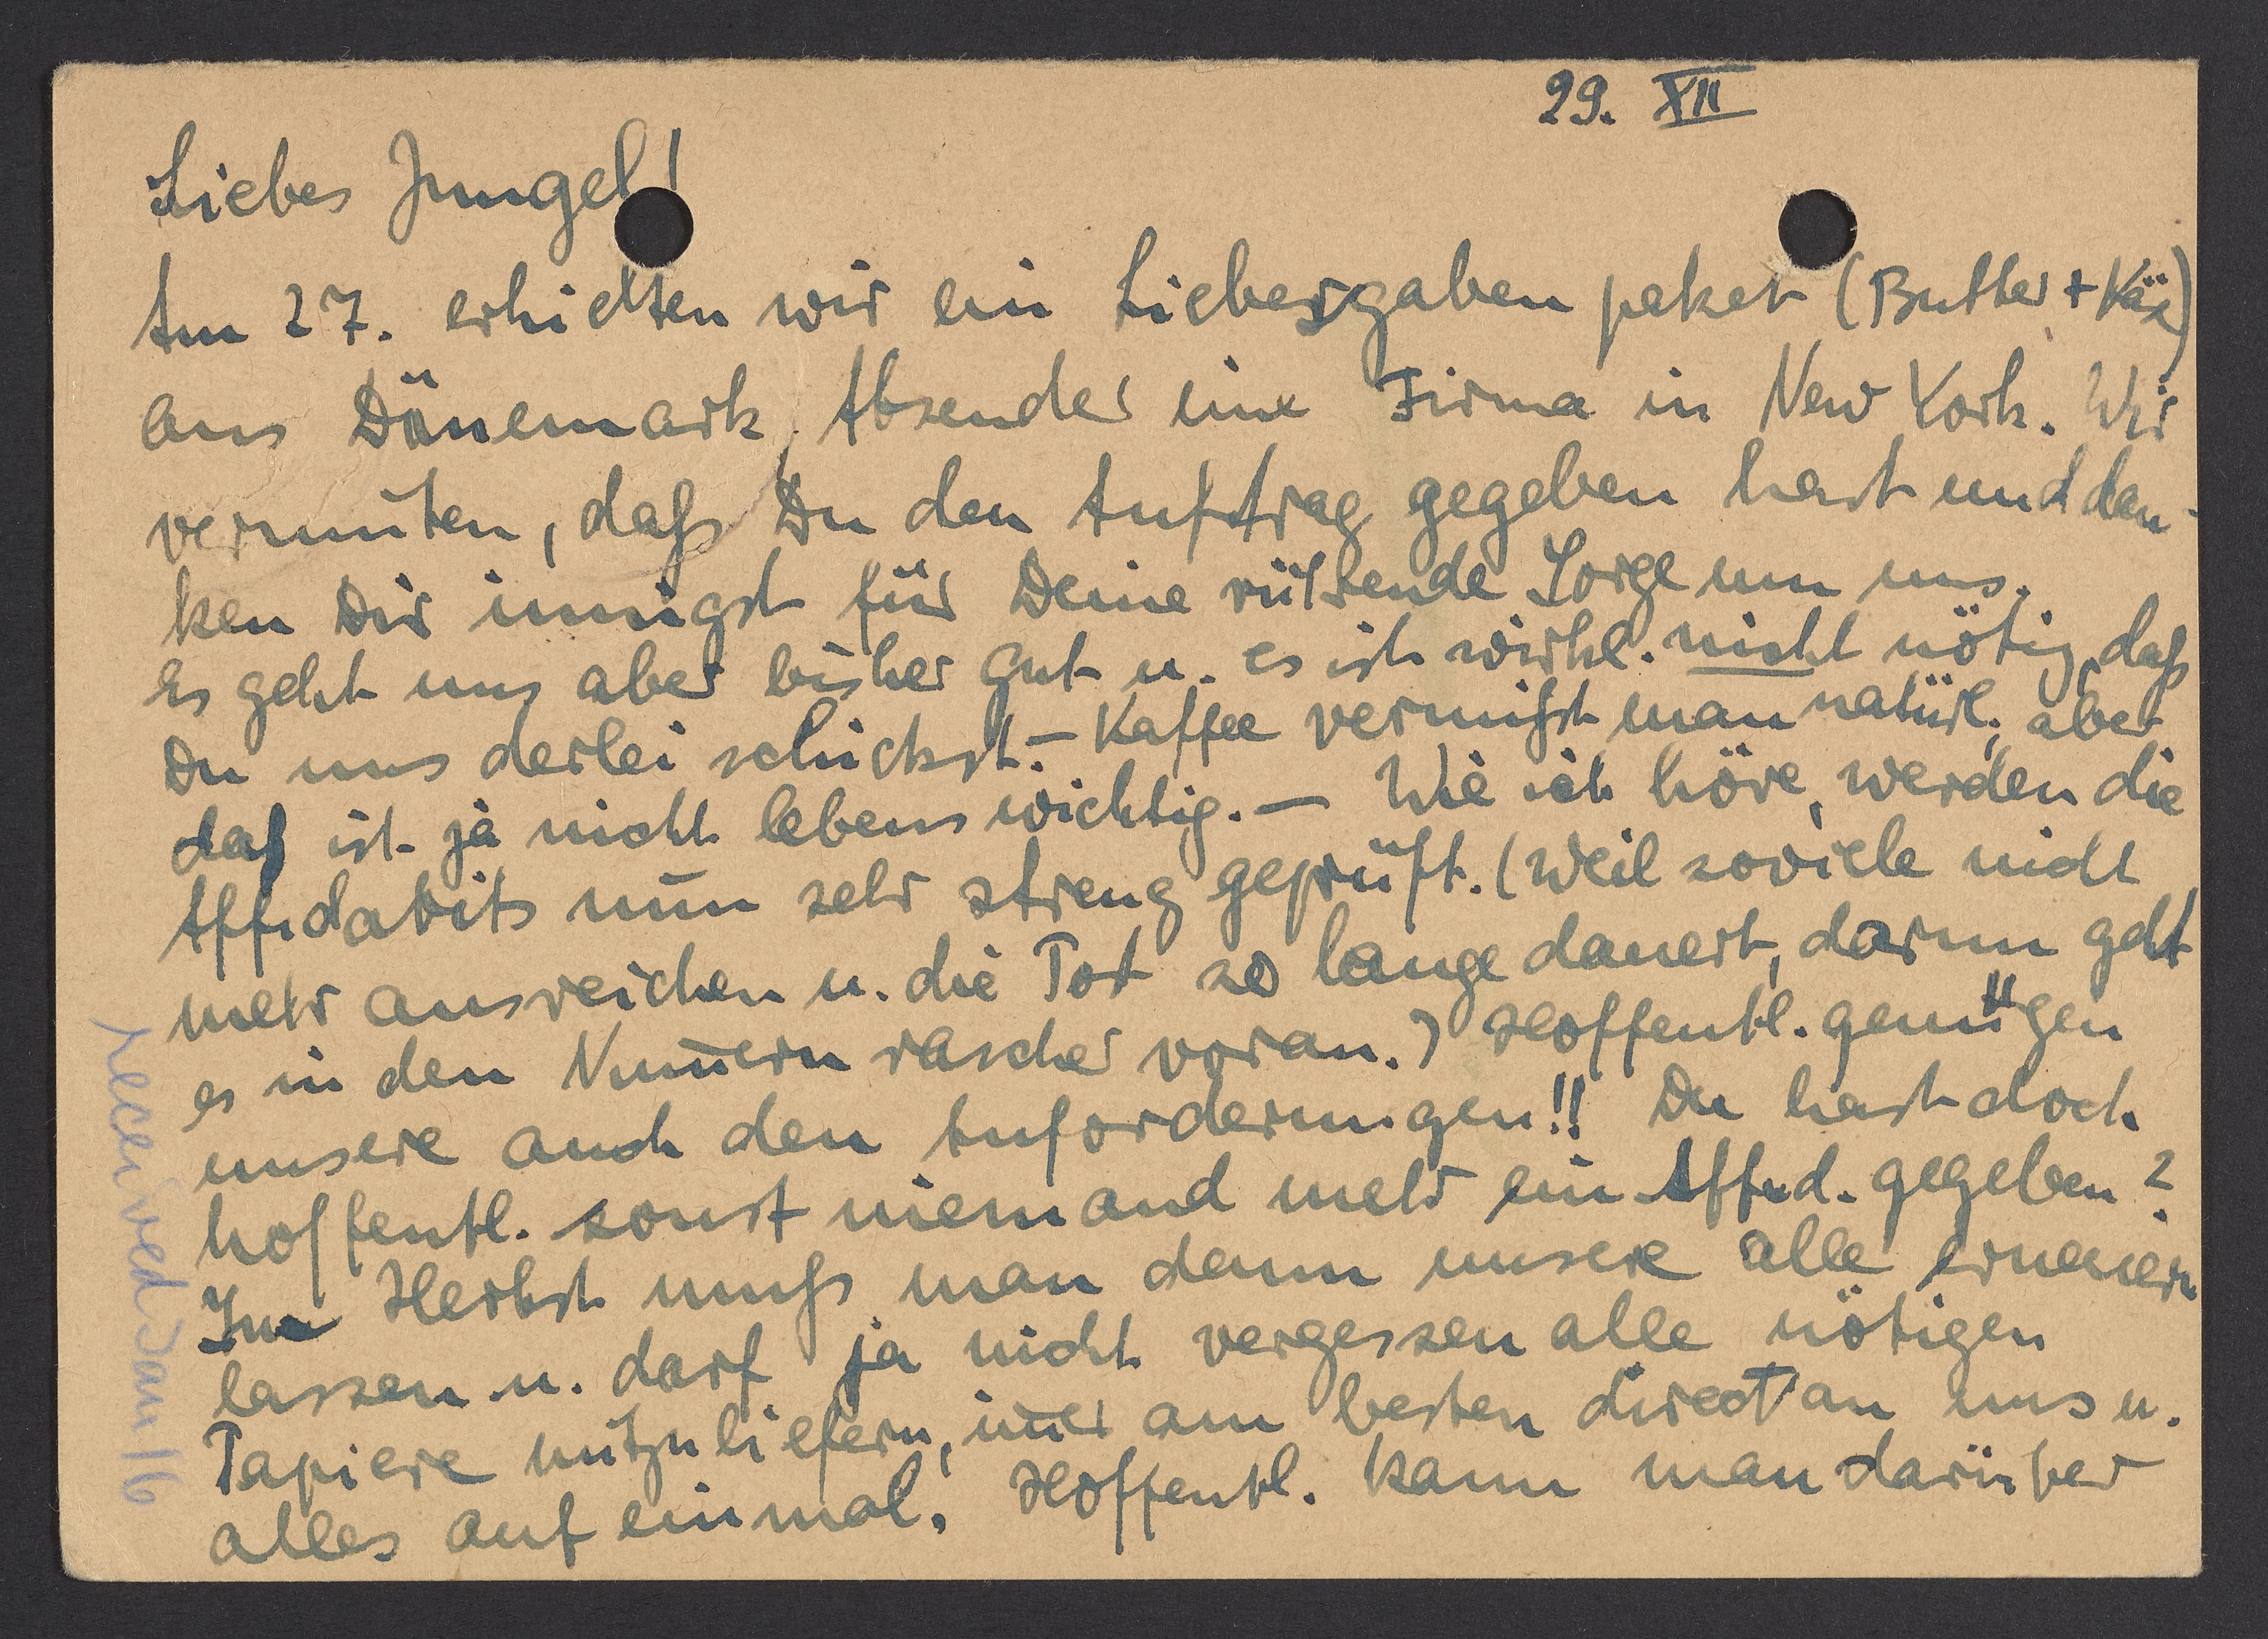 29. XII
Liebes Jungel!
Am 27. erhielten wir ein Liebesgaben paket (Butter + Käse)
aus Dänemark, Absender eine Firma in New York. Wir
vermuten, daß Du den Auftrag gegeben hast und dan-
ken Dir innigst für Deine rührende Sorge um uns.
Es geht uns aber bisher gut u. es ist wirkl. nicht nötig, daß
Du uns derlei schickst. – Kaffee vermißt man natürl., aber
das ist ja nicht lebenswichtig. – Wie ich höre, werden die
Affidavits nun sehr streng geprüft. (Weil soviele nicht
mehr ausreichen u. die Pot so lange dauert, darum geht
es in den Num̄ern rascher voran.) Hoffentl. genügen
unsere auch den Anforderungen!! Du hast doch
hoffentl. sonst niemand mehr ein Affid. gegeben?
Im Herbst muß man dann unsere alle erneuern
lassen u. darf ja nicht vergessen alle nötigen
Papiere mitzuliefern, im̄er am besten direct an uns u.
alles auf einmal. Hoffentl. kann man darüber
received Jan 16